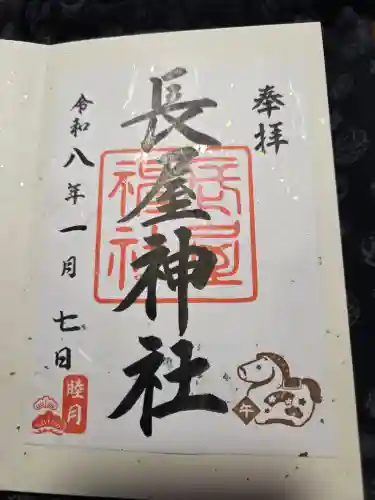 奉拝
長屋神社
令和八年一月七日
長屋神社
睦月
午